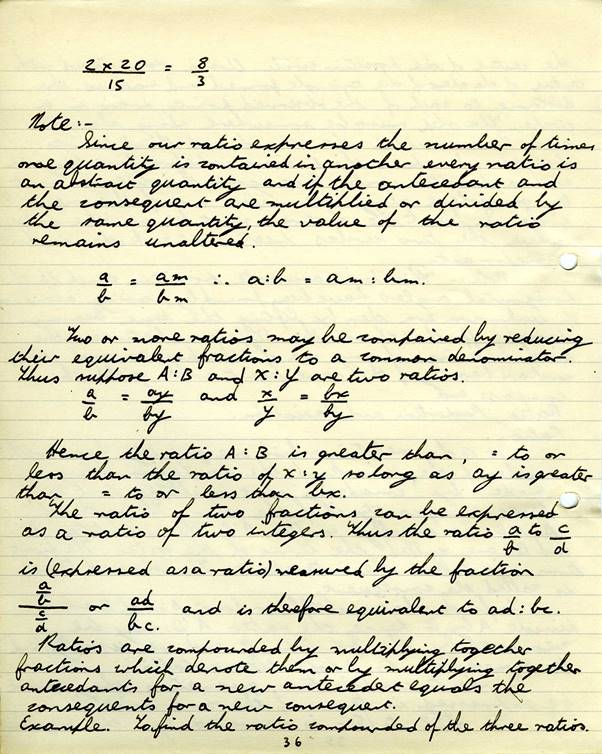 2 × 20 / 15 = 8/3
Note:-
Since our ratio expresses the number of times
one quantity is contained in another every ratio is
an abstract quantity and if the antecedant and
the consequent are multiplied or divided by
the same quantity, the value of the ratio
remains unaltered.
a/b = am/bm ∴ a:b = am:bm.
Two or more ratios may be compaired by reducing
their equivalent fractions to a common denominator.
Thus suppose A:B and X:Y are two ratios.
a/b = ay/by and x/y = bx/by
Hence the ratio A:B is greater than, = to or
less than the ratio of x:y so long as ay is greater
than, = to or less than bx.
The ratio of two fractions can be expressed
as a ratio of two integers. Thus the ratio a/b to c/d
is (expressed as a ratio) measured by the faction
a/b / c/d or ad/bc. and is therefore equivalent to ad:bc.
Ratios are compounded by multiplying together
fractions which denote them or by multiplying together
antecedants for a new antecedet equals the
consequents for a new consequent.
Example. To find the ratio compounded of the three ratios.
36